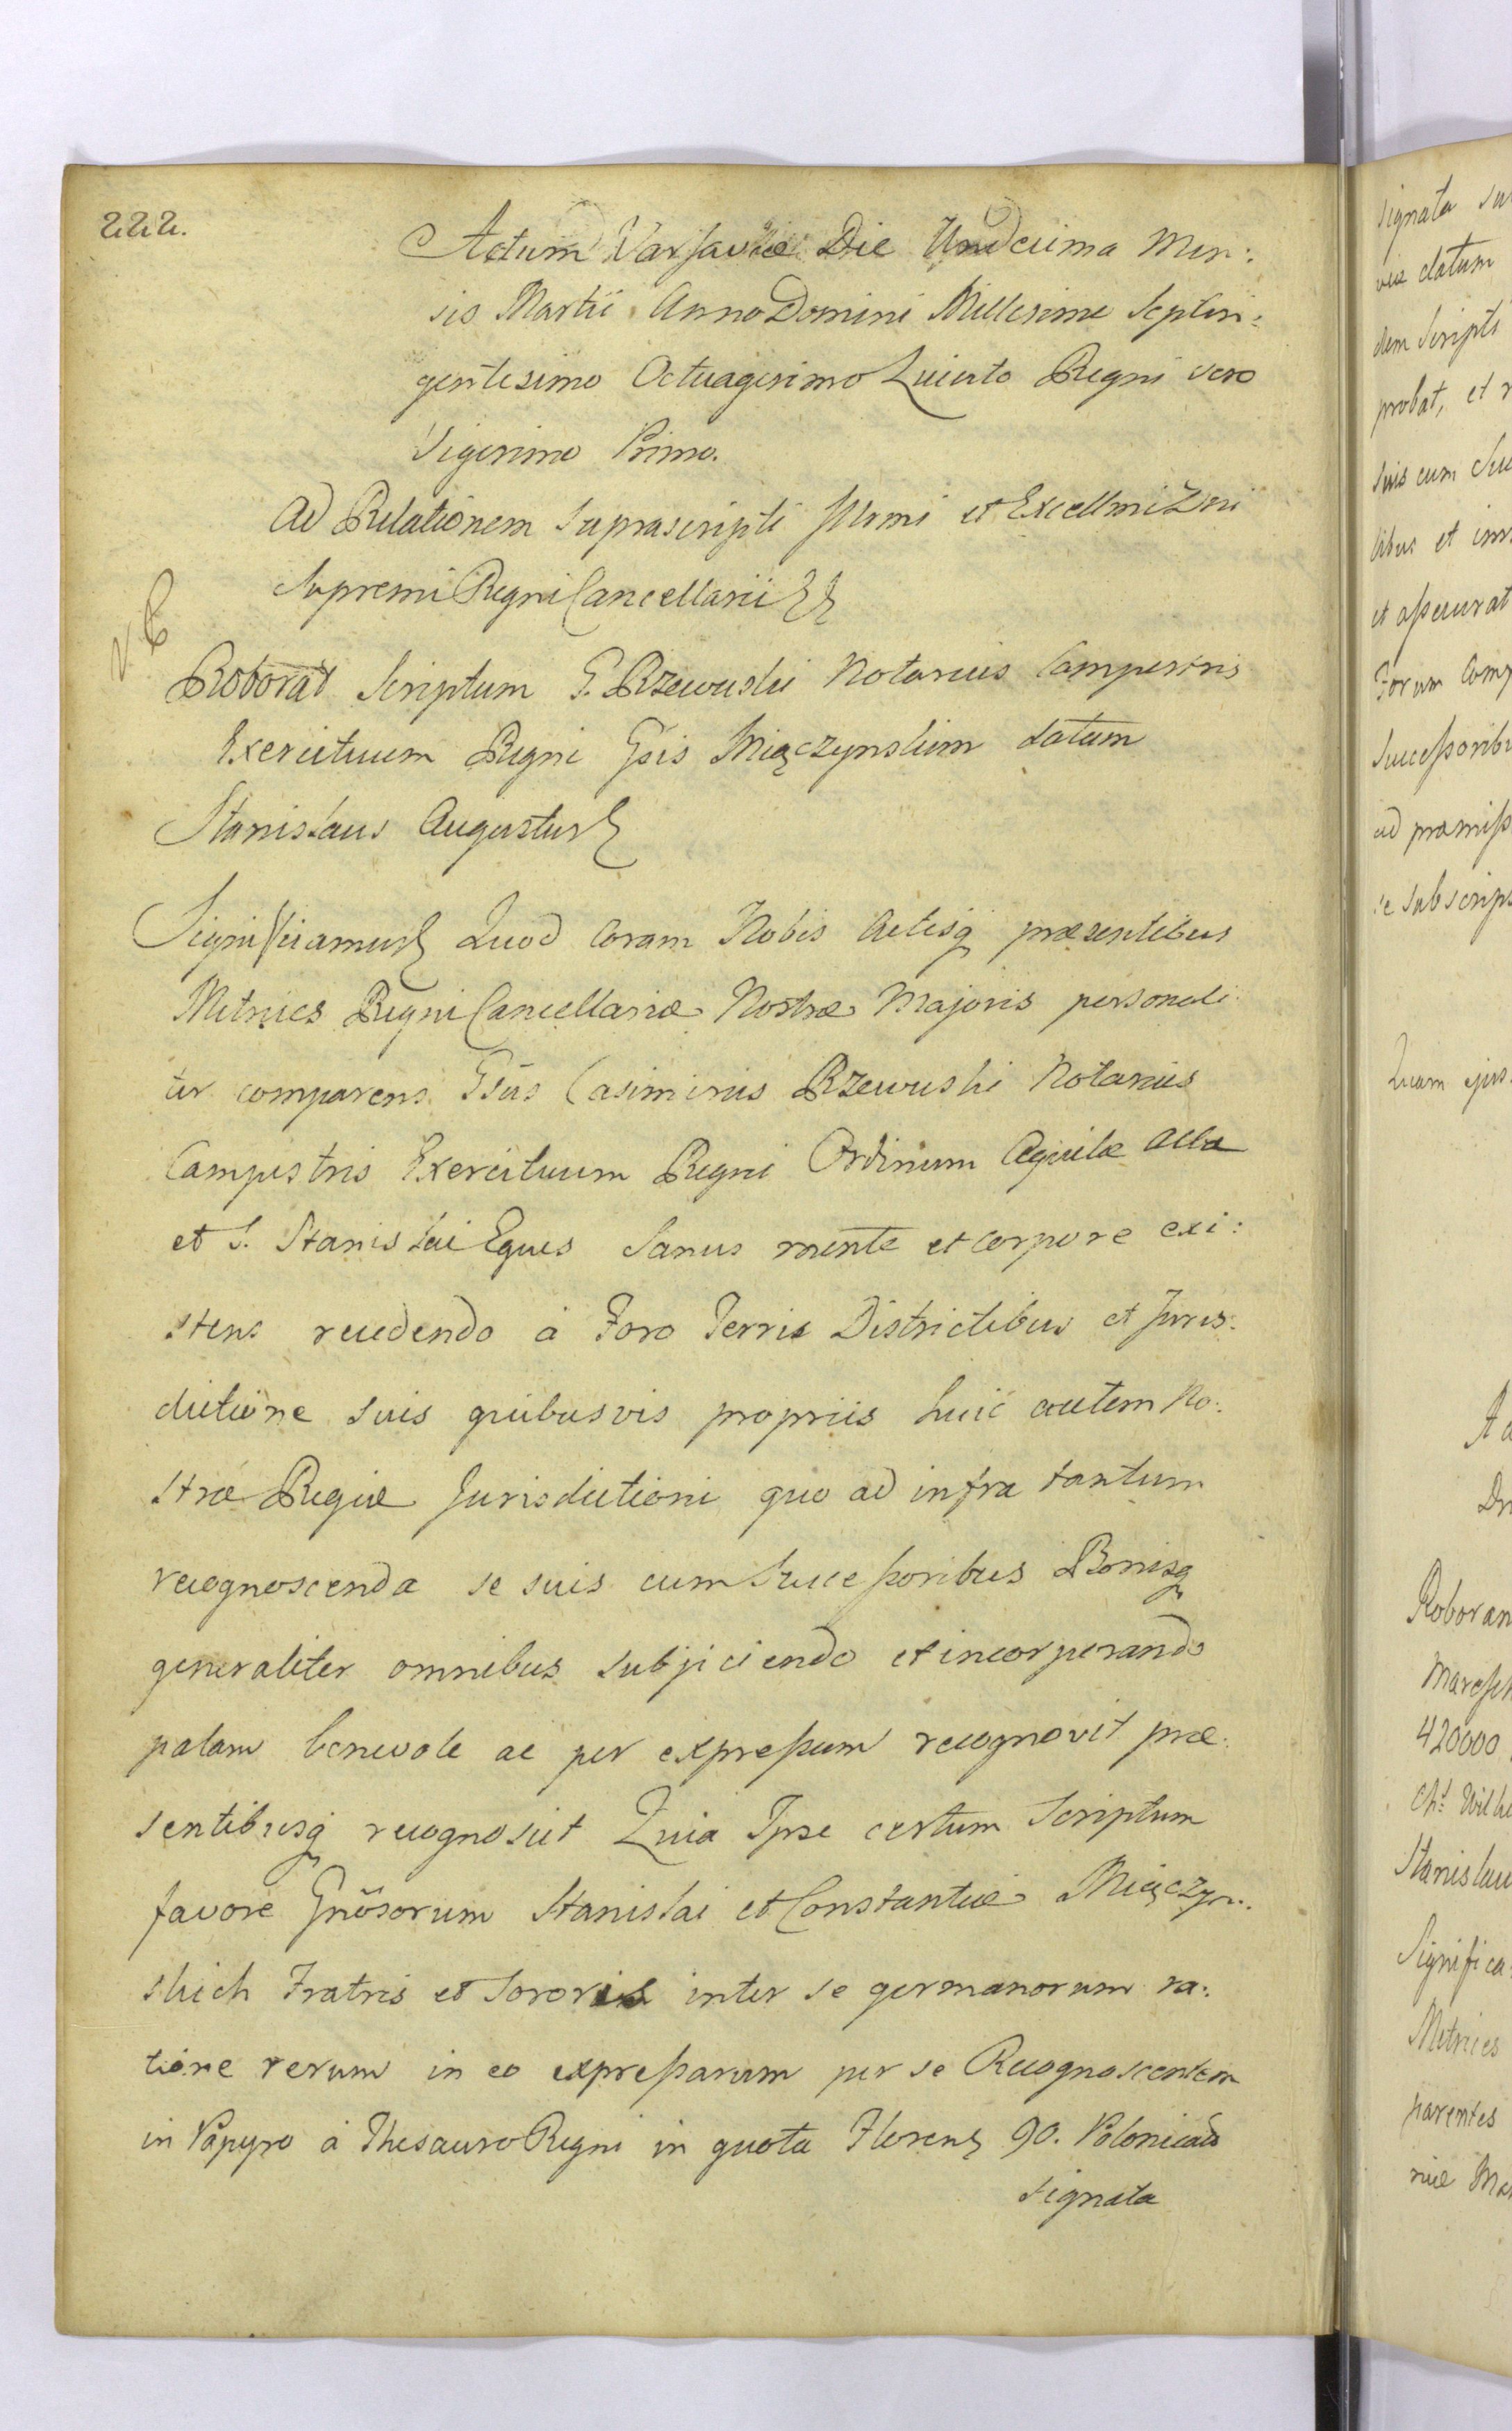 222.
Actum Varsaviæ Die Undecima Men:
sis Martii Anno Domini Millesimo Septin:
gentesimo Octuagesimo Quinto Regni vero
Vigesimo Primo.
Ad Relationem suprascripti Illrmi et Excellmi Dni
Supremi Regni Cancellarii
NB
Roborat Scriptum G. Rzewuski Notarius Campestris
Exercituum Regni Gsis Miączynskim datum
Stanislaus Augustus
Significamus Quod Coram Nobis Actisq præsentibus
Metrices Regni Cancellariæ Nostræ Majoris personali
ter comparens Gsus Casimirus Rzewuski Notarius
Campestris Exercituum Regni Ordinum Aquilæ Albæ
et S. Stanislai Eques Sanus mente et corpore exi:
stens recedendo à Foro Terris Districtibus et Juris:
dictione suis quibusvis propriis huic autem No:
stræ Regiæ Jurisdictioni quo ad infra tantum
recognoscenda se suis cum Successoribus Bonisq
generaliter omnibus subjiciendo et incorporando
palam benevole ac per expressum recognovit præ:
sentibusq recognoscit Quia Ipse certum Scriptum
favore Gnõsorum Stanislai et Constantiæ Miączyn:
skich Fratris et Sororis inter se germanorum ra:
tione rerum in eo expressarum per se Recognoscentem
in Papyro à Thesauro Regni in quota Floren 90. Polonical
signata
signata
viæ datum
dem Scripti
probat, et
suis cum Suc
libus et
et assecurat
Forum Comp
Successoribu
ad præmiss
se subscrips
Quam ejus
Roboran
420000
Stanislau
Significa
Metrices
parentes